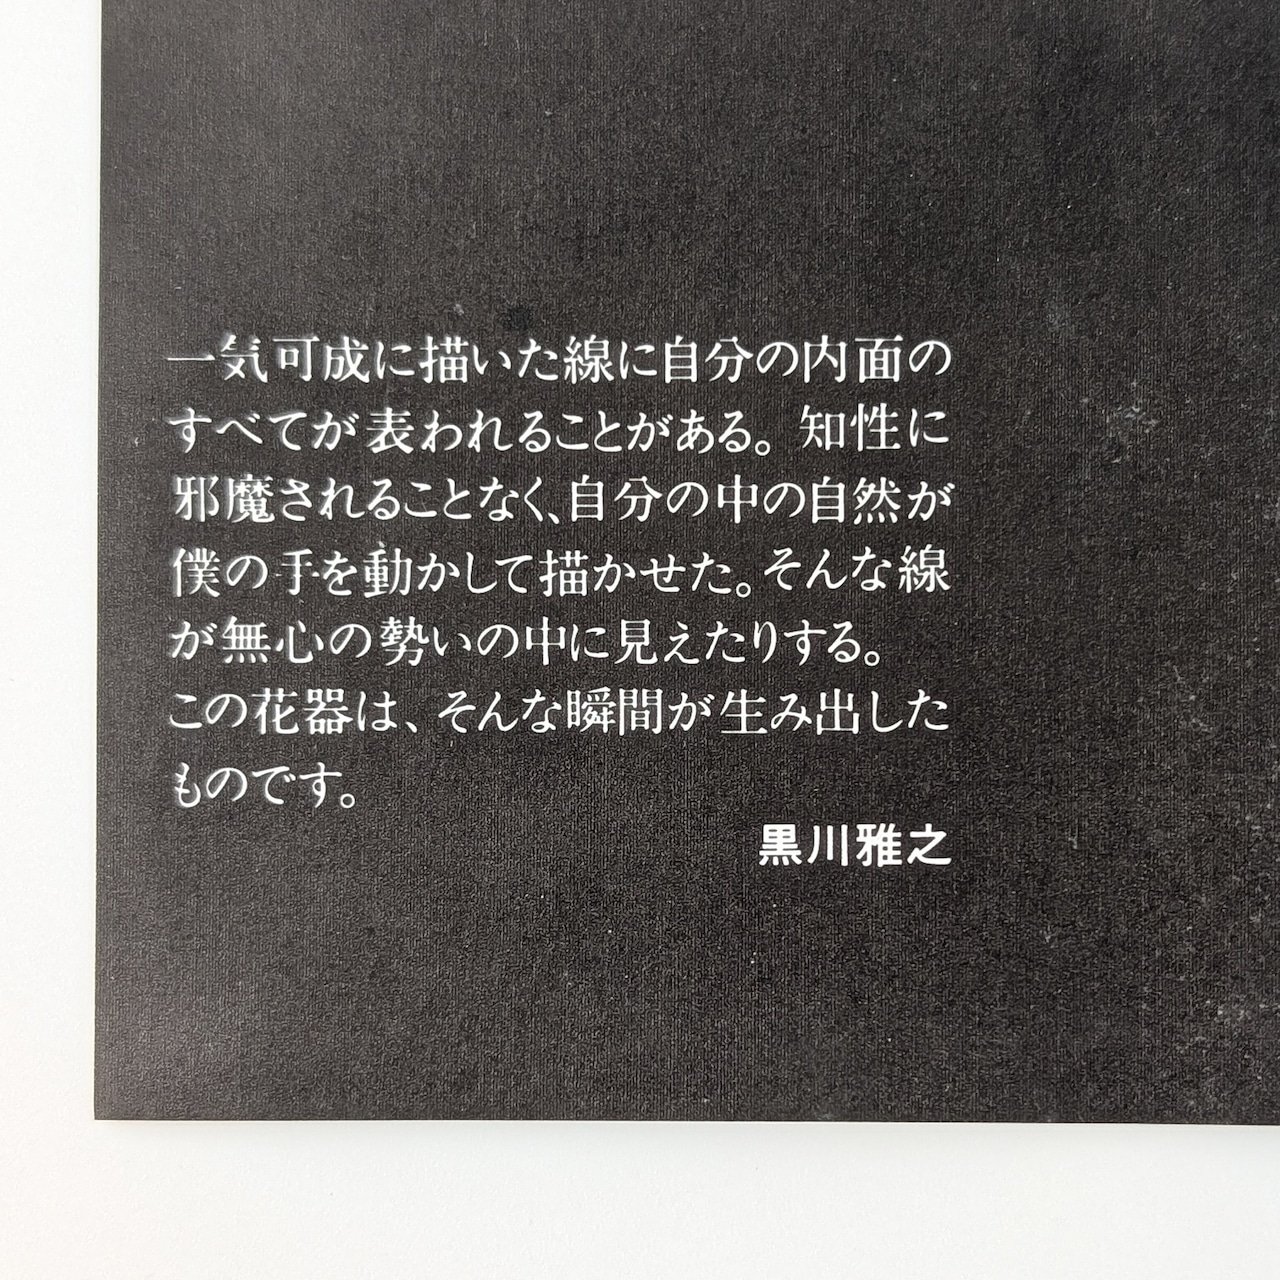 一気可成に描いた線に自分の内面の
すべてが表われることがある。知性に
邪魔されることなく、自分の中の自然が
僕の手を動かして描かせた。そんな線
が無心の勢いの中に見えたりする。
この花器は、そんな瞬間が生み出した
ものです。
黒川雅之